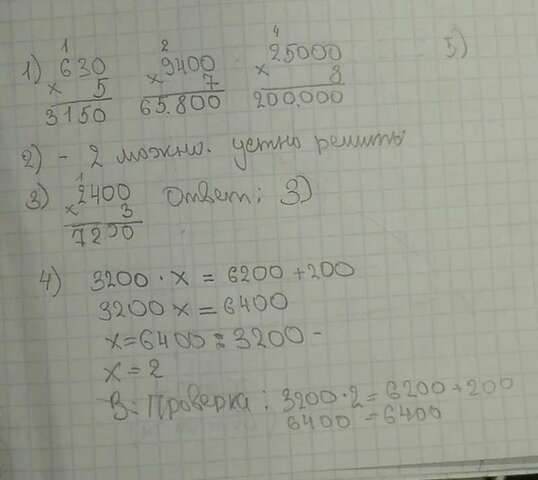 1) 630 × 5 3150
9400 × 7 65.800
25000 × 8 200.000
5)
2) - 2 можно. устно решить
3) 2400 × 3 7200 Ответ: 3)
4) 3200 · x = 6200 + 200
3200 x = 6400
x = 6400 : 3200 -
x = 2
В: Проверка: 3200 · 2 = 6200 + 200
6400 = 6400